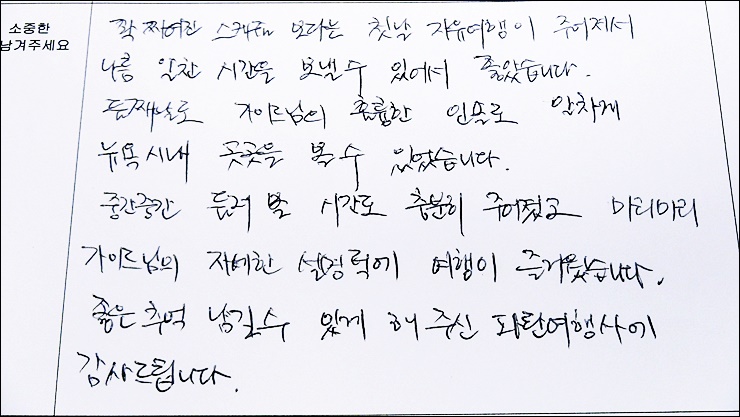 소중한
남겨주세요
꽉 짜여진 스케줄 보다는 첫날 자유여행이 주어져서
나름 알찬 시간을 보낼 수 있어서 좋았습니다.
둘째날도 가이드님의 훌륭한 인솔로 알차게
뉴욕시내 곳곳을 볼 수 있었습니다.
중간중간 둘러 볼 시간도 충분히 주어졌고 마디마디
가이드님의 자세한 설명 덕에 여행이 즐거웠습니다.
좋은 추억 남길수 있게 해 주신 파란여행사에
감사드립니다.